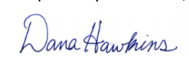 Dana Hawkins